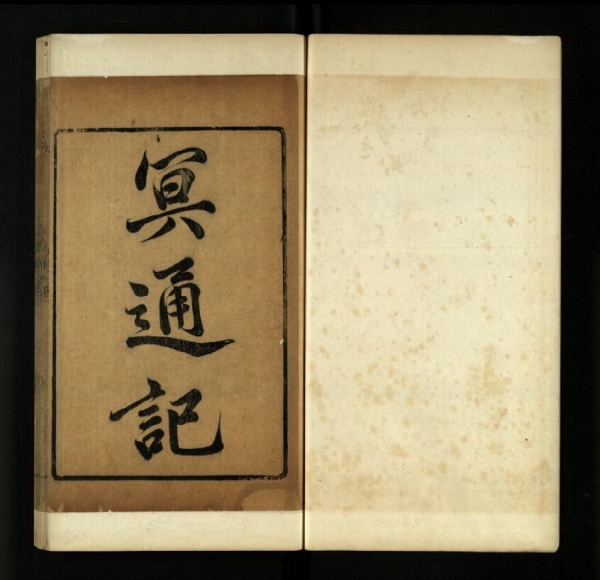 冥通記